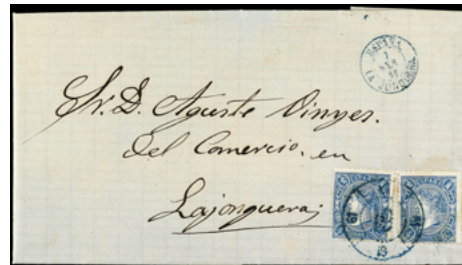 ESPAÑA
LA JUNQUERA
Sr. D. Aguste Vinyes.
Del Comercio. en
Lajonquera;
19